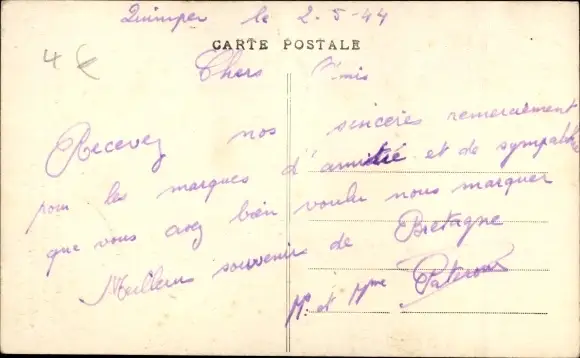 Quimper le 2-5-44
4 €
CARTE POSTALE
Chers Amis
Recevez nos sincères remerciement
pour les marques d'amitié et de sympathie
que vous avez bien voulu nous marquer
Meilleurs souvenirs de Bretagne
Mr et Mme